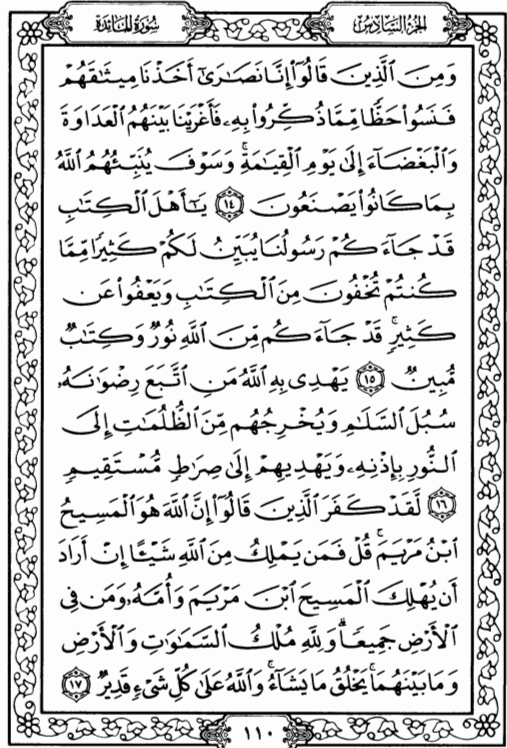 الجزء السادس
سورة المائدة
وَمِنَ ٱلَّذِينَ قَالُوٓاْ إِنَّا نَصَٰرَىٰٓ أَخَذۡنَا مِيثَٰقَهُمۡ
فَنَسُواْ حَظّٗا مِّمَّا ذُكِّرُواْ بِهِۦ فَأَغۡرَيۡنَا بَيۡنَهُمُ ٱلۡعَدَاوَةَ
وَٱلۡبَغۡضَآءَ إِلَىٰ يَوۡمِ ٱلۡقِيَٰمَةِۚ وَسَوۡفَ يُنَبِّئُهُمُ ٱللَّهُ
بِمَا كَانُواْ يَصۡنَعُونَ ١٤ يَٰٓأَهۡلَ ٱلۡكِتَٰبِ
قَدۡ جَآءَكُمۡ رَسُولُنَا يُبَيِّنُ لَكُمۡ كَثِيرٗا مِّمَّا
كُنتُمۡ تُخۡفُونَ مِنَ ٱلۡكِتَٰبِ وَيَعۡفُواْ عَن
كَثِيرٖۚ قَدۡ جَآءَكُم مِّنَ ٱللَّهِ نُورٞ وَكِتَٰبٞ
مُّبِينٞ ١٥ يَهۡدِي بِهِ ٱللَّهُ مَنِ ٱتَّبَعَ رِضۡوَٰنَهُۥ
سُبُلَ ٱلسَّلَٰمِ وَيُخۡرِجُهُم مِّنَ ٱلظُّلُمَٰتِ إِلَى
ٱلنُّورِ بِإِذۡنِهِۦ وَيَهۡدِيهِمۡ إِلَىٰ صِرَٰطٖ مُّسۡتَقِيمٖ
١٦ لَّقَدۡ كَفَرَ ٱلَّذِينَ قَالُوٓاْ إِنَّ ٱللَّهَ هُوَ ٱلۡمَسِيحُ
ٱبۡنُ مَرۡيَمَۚ قُلۡ فَمَن يَمۡلِكُ مِنَ ٱللَّهِ شَيۡـًٔا إِنۡ أَرَادَ
أَن يُهۡلِكَ ٱلۡمَسِيحَ ٱبۡنَ مَرۡيَمَ وَأُمَّهُۥ وَمَن فِي
ٱلۡأَرۡضِ جَمِيعٗاۗ وَلِلَّهِ مُلۡكُ ٱلسَّمَٰوَٰتِ وَٱلۡأَرۡضِ
وَمَا بَيۡنَهُمَاۚ يَخۡلُقُ مَا يَشَآءُۚ وَٱللَّهُ عَلَىٰ كُلِّ شَيۡءٖ قَدِيرٞ ١٧
١١٠